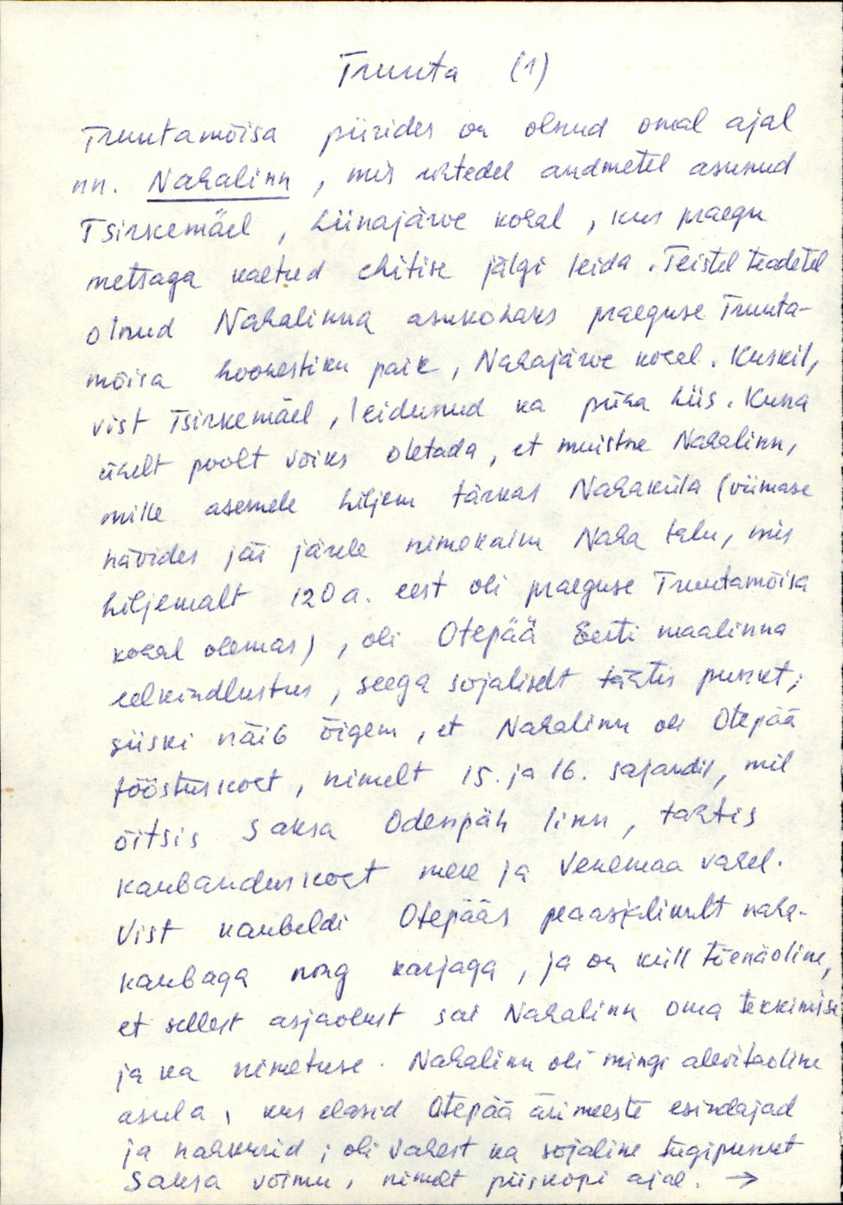 Truuta (1)
Truutamõisa piirides on olnud omal ajal
nn. Nahalinn, mis ühtedel andmetel asunud
Tsirkemäel, Liinajärve kohal, kus praegu
metsaga kaetud ehitise jälgi leida. Teistel teadetel
olnud Nahalinna asukohaks praeguse Truuta-
mõisa hoonestiku paik, Nahajärve kohal. Kuskil,
vist Tsirkemäel, leidunud ka püha hiis. Kuna
ühelt poolt võiks oletada, et muistne Nahalinn,
mille asemele hiljem tärkas Nahaküla (viimase
hävides jäi järele nimekaim Naha talu, mis
hiljemalt 120 a. eest oli praeguse Truutamõisa
kohal olemas), oli Otepää Eesti maalinna
eelkindlustus, seega sõjaliselt tähtis punkt;
siiski näib õigem, et Nahalinn oli Otepää
tööstuskoht, nimelt 15. ja 16. sajandil, mil
õitsis Saksa Odenpäh linn, tähtis
kaubanduskoht mere ja Venemaa vahel.
Vist kaubeldi Otepääs peaasjalikult naha-
kaubaga ning karjaga, ja on küll tõenäoline,
et sellest asjaolust sai Nahalinn oma tekkimise
ja ka nimetuse. Nahalinn oli mingi alevitaoline
asula, kus elasid Otepää ärimeeste esindajad
ja nahkurid; oli vahest ka sõjaline tugipunkt
Saksa võimu, nimelt piiskopi ajal. →